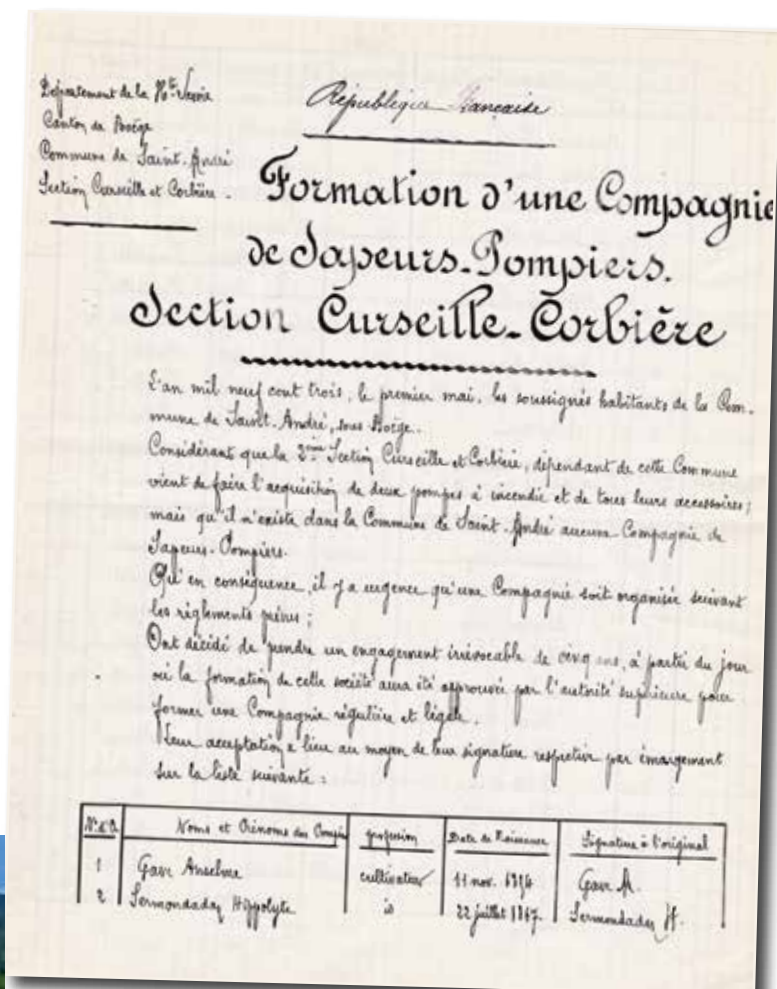 Département de la Hte Savoie
Canton de Boëge
Commune de Saint-André
Section Curseille et Corbière.
République Française
Formation d'une Compagnie
de Sapeurs-Pompiers.
Section Curseille-Corbière
L'an mil neuf cent trois, le premier mai, les soussignés habitants de la Com-
mune de Saint-André, sous Boëge.
Considérant que la 2ème Section Curseille et Corbière, dépendant de cette Commune
vient de faire l'acquisition de deux pompes à incendie et de tous leurs accessoires;
mais qu'il n'existe dans la Commune de Saint-André aucune Compagnie de
Sapeurs-Pompiers.
Qu'en conséquence, il y a urgence qu'une Compagnie soit organisée suivant
les règlements prévus;
Ont décidé de prendre un engagement irrévocable de cinq ans, à partir du jour
où la formation de cette société aura été approuvée par l'autorité supérieure pour
former une Compagnie régulière et légale.
Leur acceptation a lieu au moyen de leur signature respective par émargement
sur la liste suivante:
N° d'O. Noms et Prénoms des Pompiers profession Date de Naissance Signature à l'original
1 Gavr Anselme cultivateur 11 nov. Gavr A.
2 Sermondadaz Hippolyte id 22 juillet 1867. Sermondadaz H.